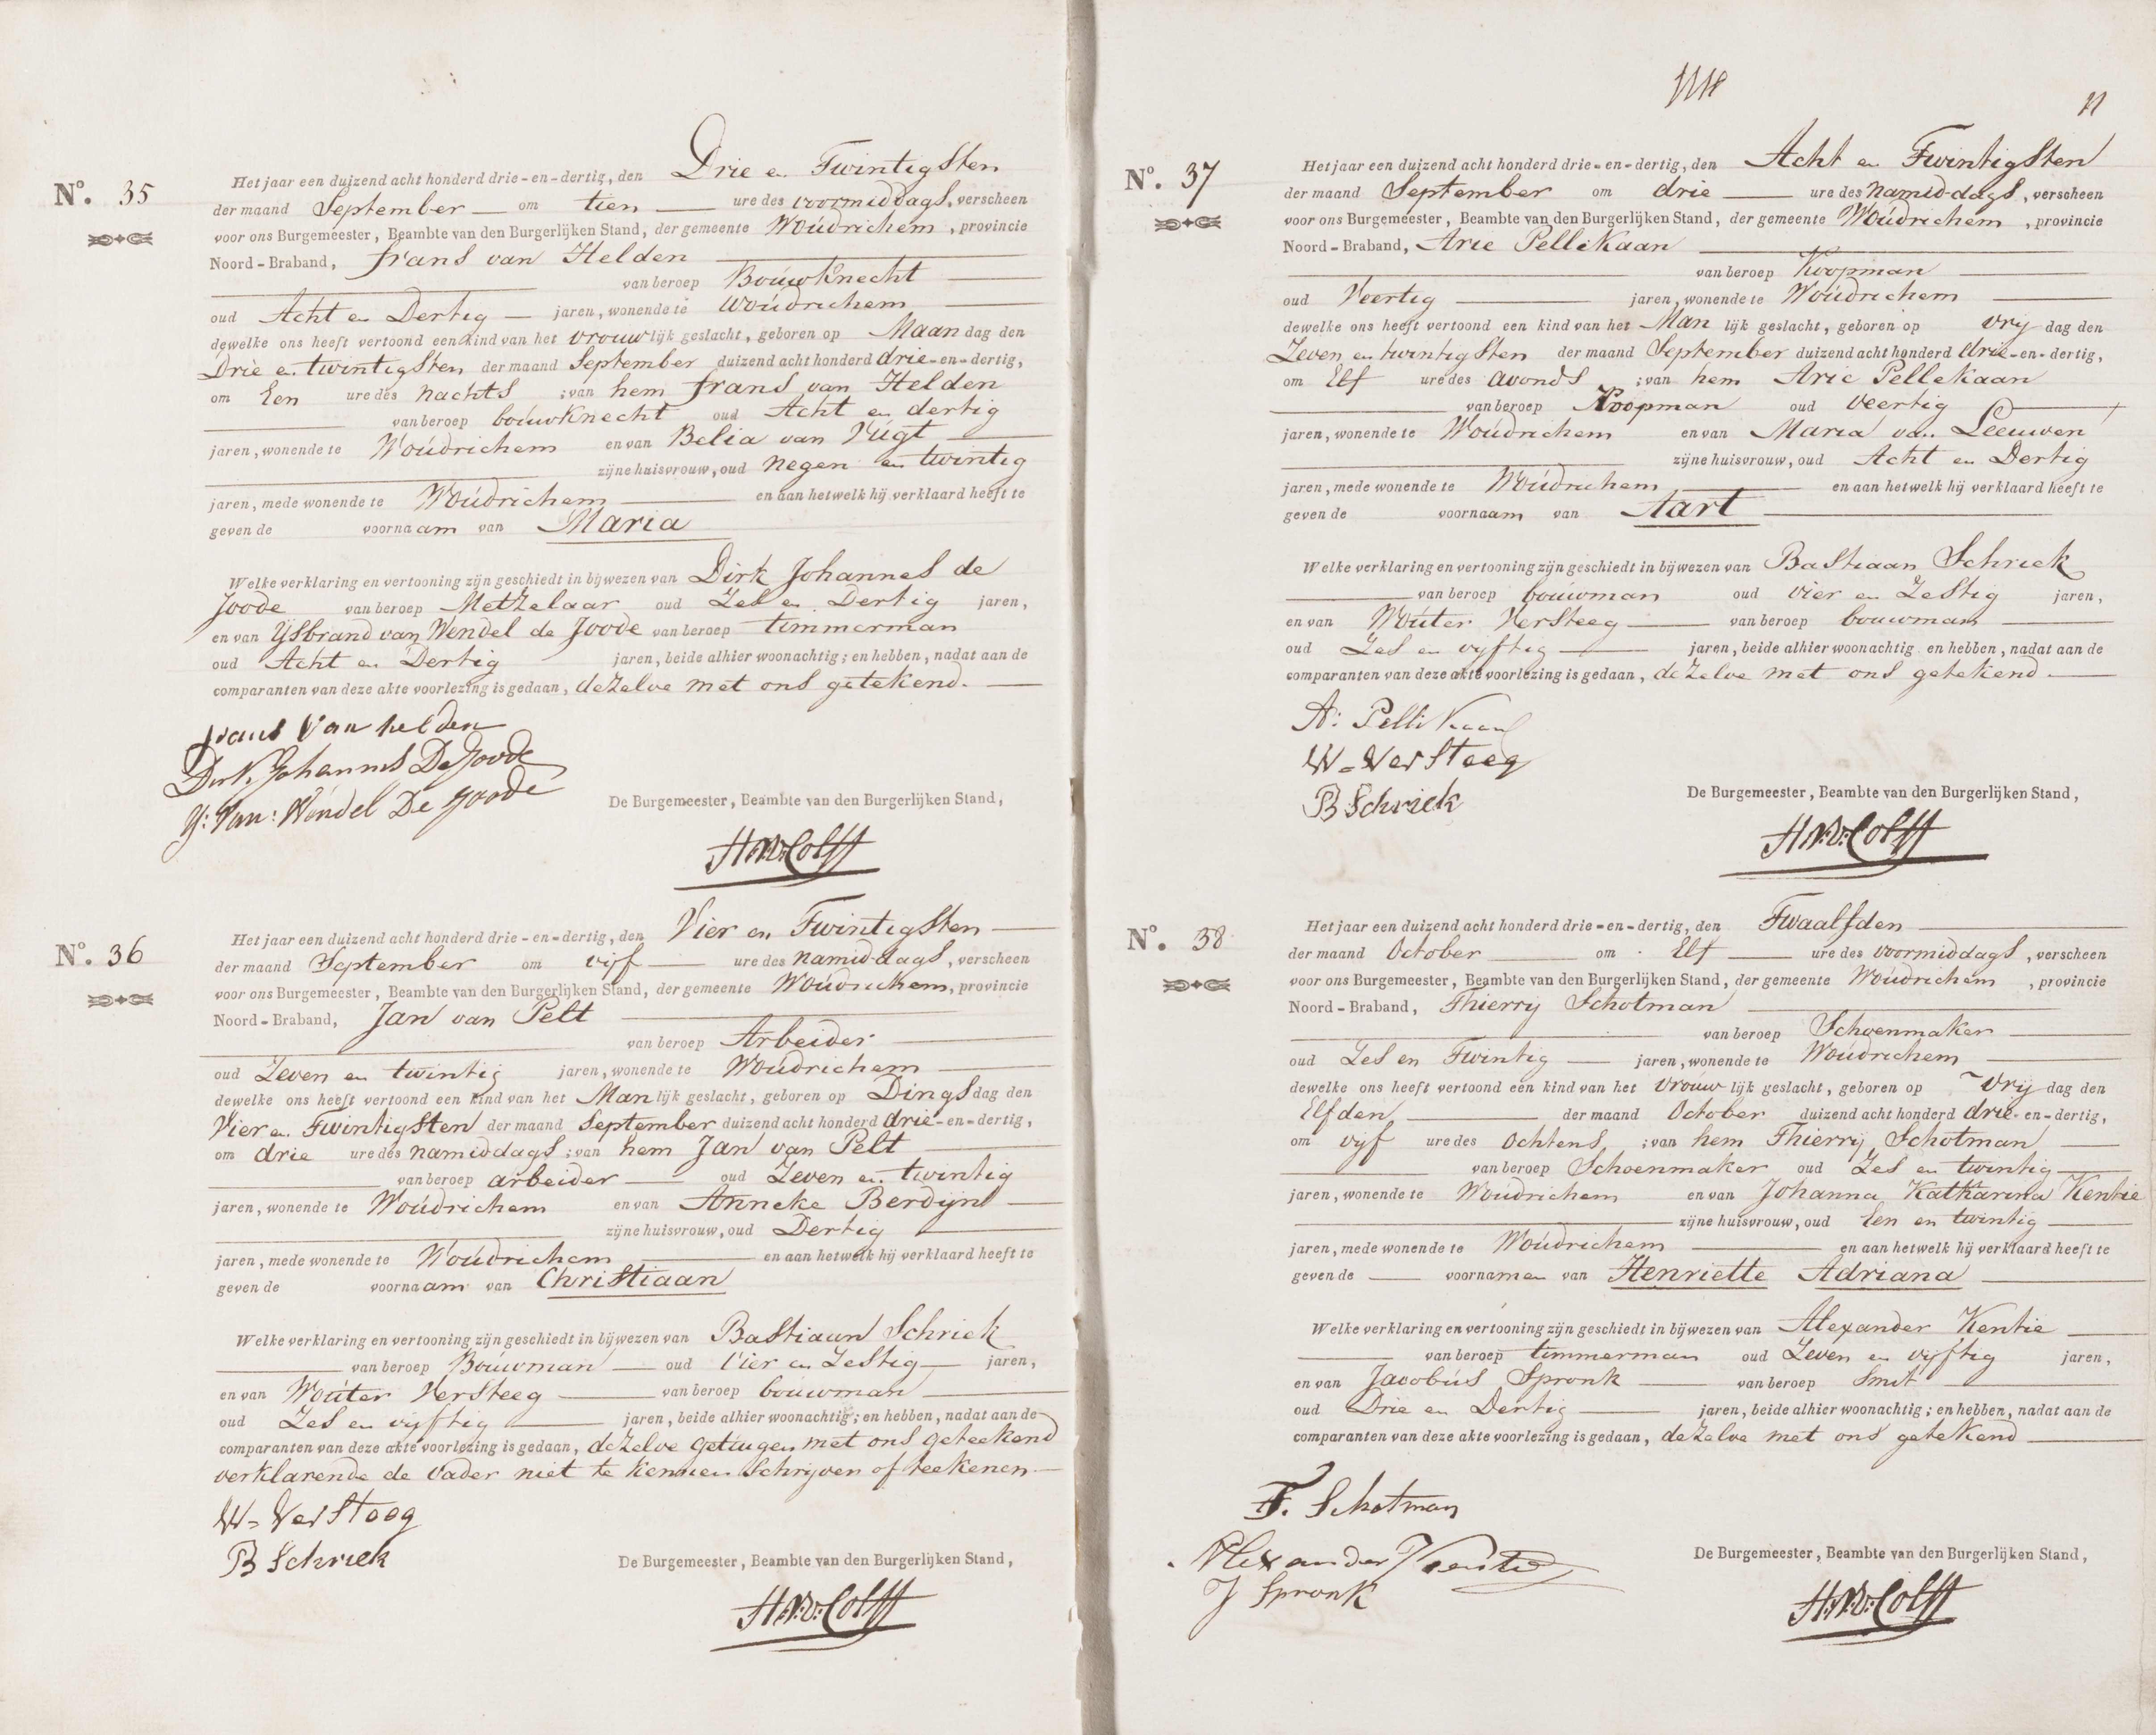 No. 35
Het jaar een duizend acht honderd drie-en-dertig, den Drie en Twintigsten
der maand September om tien ure des voormiddags, verscheen
voor ons Burgemeester, Beambte van den Burgerlijken Stand, der gemeente Woúdrichem, provincie
Noord-Braband, frans van Helden
van beroep Boúwknecht
oud Acht en Dertig jaren, wonende te Woúdrichem
dewelke ons heeft vertoond een kind van het vrouwlijk geslacht, geboren op Maandag den
Drie en twintigsten der maand September duizend acht honderd drie-en-dertig,
om Een ure des nachts ; van hem frans van Helden
van beroep boúwknecht oud Acht en dertig
jaren, wonende te Woúdrichem en van Belia van Vúgt
zijne huisvrouw, oud negen en twintig
jaren, mede wonende te Woúdrichem en aan hetwelk hij verklaard heeft te
geven de voornaam van Maria
Welke verklaring en vertooning zijn geschiedt in bijwezen van Dirk Johannes de
Joode van beroep Metzelaar oud Zes en Dertig jaren,
en van Ysbrand van Wendel de Joode van beroep timmerman
oud Acht en Dertig jaren, beide alhier woonachtig; en hebben, nadat aan de
comparanten van deze akte voorlezing is gedaan, dezelve met ons getekend.
frans Van helden
Dirk Johannes De Joode
Y: Van: Wendel De Joode
De Burgemeester, Beambte van den Burgerlijken Stand,
H.W.v.Colff
No. 36
Het jaar een duizend acht honderd drie-en-dertig, den Vier en Twintigsten
der maand September om vijf ure des namiddags, verscheen
voor ons Burgemeester, Beambte van den Burgerlijken Stand, der gemeente Woúdrichem, provincie
Noord-Braband, Jan van Pelt
van beroep Arbeider
oud Zeven en twintig jaren, wonende te Woúdrichem
dewelke ons heeft vertoond een kind van het Manlijk geslacht, geboren op Dingsdag den
Vier en Twintigsten der maand September duizend acht honderd drie-en-dertig,
om drie ure des namiddags ; van hem Jan van Pelt
van beroep arbeider oud Zeven en twintig
jaren, wonende te Woúdrichem en van Anneke Berdijn
zijne huisvrouw, oud Dertig
jaren, mede wonende te Woúdrichem en aan hetwelk hij verklaard heeft te
geven de voornaam van Christiaan
Welke verklaring en vertooning zijn geschiedt in bijwezen van Bastiaan Schriek
van beroep Boúwman oud Vier en Zestig jaren,
en van Woúter Versteeg van beroep boúwman
oud Zes en vijftig jaren, beide alhier woonachtig; en hebben, nadat aan de
comparanten van deze akte voorlezing is gedaan, dezelve getúigen met ons geteekend
verklarende de vader niet te kennen Schrijven of teekenen
W. Versteeg
B Schriek
De Burgemeester, Beambte van den Burgerlijken Stand,
H.W.v.Colff
11
No. 37
Het jaar een duizend acht honderd drie-en-dertig, den Acht en Twintigsten
der maand September om drie ure des namiddags, verscheen
voor ons Burgemeester, Beambte van den Burgerlijken Stand, der gemeente Woúdrichem, provincie
Noord-Braband, Arie Pellekaan
van beroep Koopman
oud Veertig jaren, wonende te Woúdrichem
dewelke ons heeft vertoond een kind van het Man lijk geslacht, geboren op vrij dag den
Zeven en twintigsten der maand September duizend acht honderd drie-en-dertig,
om Elf ure des avonds ; van hem Arie Pellekaan
van beroep Koopman oud veertig
jaren, wonende te Woúdrichem en van Maria van Leeuwen
zijne huisvrouw, oud Acht en Dertig
jaren, mede wonende te Woúdrichem en aan hetwelk hij verklaard heeft te
geven de voornaam van Aart
Welke verklaring en vertooning zijn geschiedt in bijwezen van Bastiaan Schriek
van beroep boúwman oud vier en Zestig jaren,
en van Woúter Versteeg van beroep bouwman
oud Zes en vijftig jaren, beide alhier woonachtig en hebben, nadat aan de
comparanten van deze akte voorlezing is gedaan, dezelve met ons getekend.
A: Pellikaan
W. Versteeg
B Schriek
De Burgemeester, Beambte van den Burgerlijken Stand,
H.W.v.Colff
No. 38
Het jaar een duizend acht honderd drie-en-dertig, den Twaalfden
der maand October om Elf ure des voormiddags, verscheen
voor ons Burgemeester, Beambte van den Burgerlijken Stand, der gemeente Woúdrichem, provincie
Noord-Braband, Thierrij Schotman
van beroep Schoenmaker
oud Zes en Twintig jaren, wonende te Woúdrichem
dewelke ons heeft vertoond een kind van het vrouw lijk geslacht, geboren op Vrij dag den
Elfden der maand October duizend acht honderd drie-en-dertig,
om vijf ure des ochtens ; van hem Thierrij Schotman
van beroep Schoenmaker oud Zes en twintig
jaren, wonende te Woúdrichem en van Johanna Katharina Kentie
zijne huisvrouw, oud Een en twintig
jaren, mede wonende te Woúdrichem en aan hetwelk hij verklaard heeft te
geven de voornamen van Henriette Adriana
Welke verklaring en vertooning zijn geschiedt in bijwezen van Alexander Kentie
van beroep timmerman oud Zeven en vijftig jaren,
en van Jacobús Spronk van beroep Smit
oud Drie en Dertig jaren, beide alhier woonachtig; en hebben, nadat aan de
comparanten van deze akte voorlezing is gedaan, dezelve met ons getekend
T. Schotman
Alexander Kentie
J Spronk
De Burgemeester, Beambte van den Burgerlijken Stand,
H.W.v.Colff